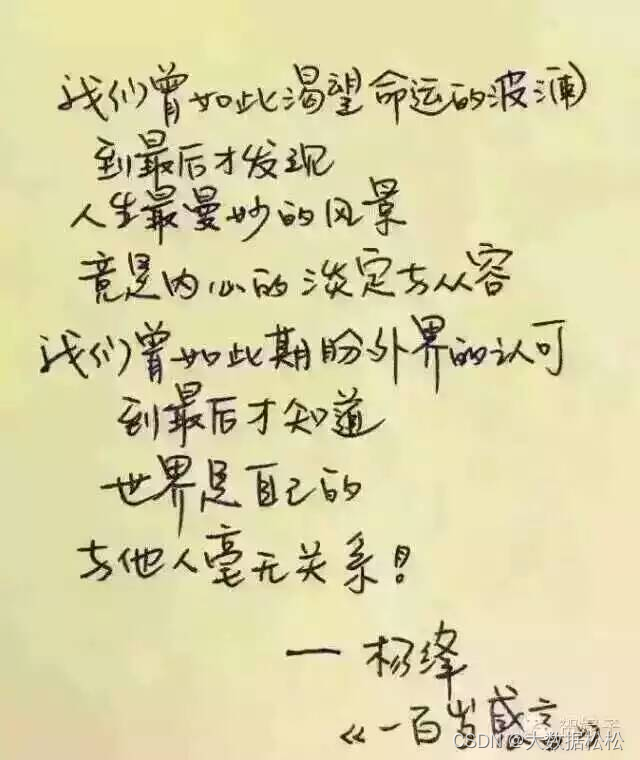 我们曾如此渴望命运的波澜
到最后才发现
人生最曼妙的风景
竟是内心的淡定与从容
我们曾如此期盼外界的认可
到最后才知道
世界是自己的
与他人毫无关系!
— 杨绛
《一百岁感言》
CSDN @大数据松松